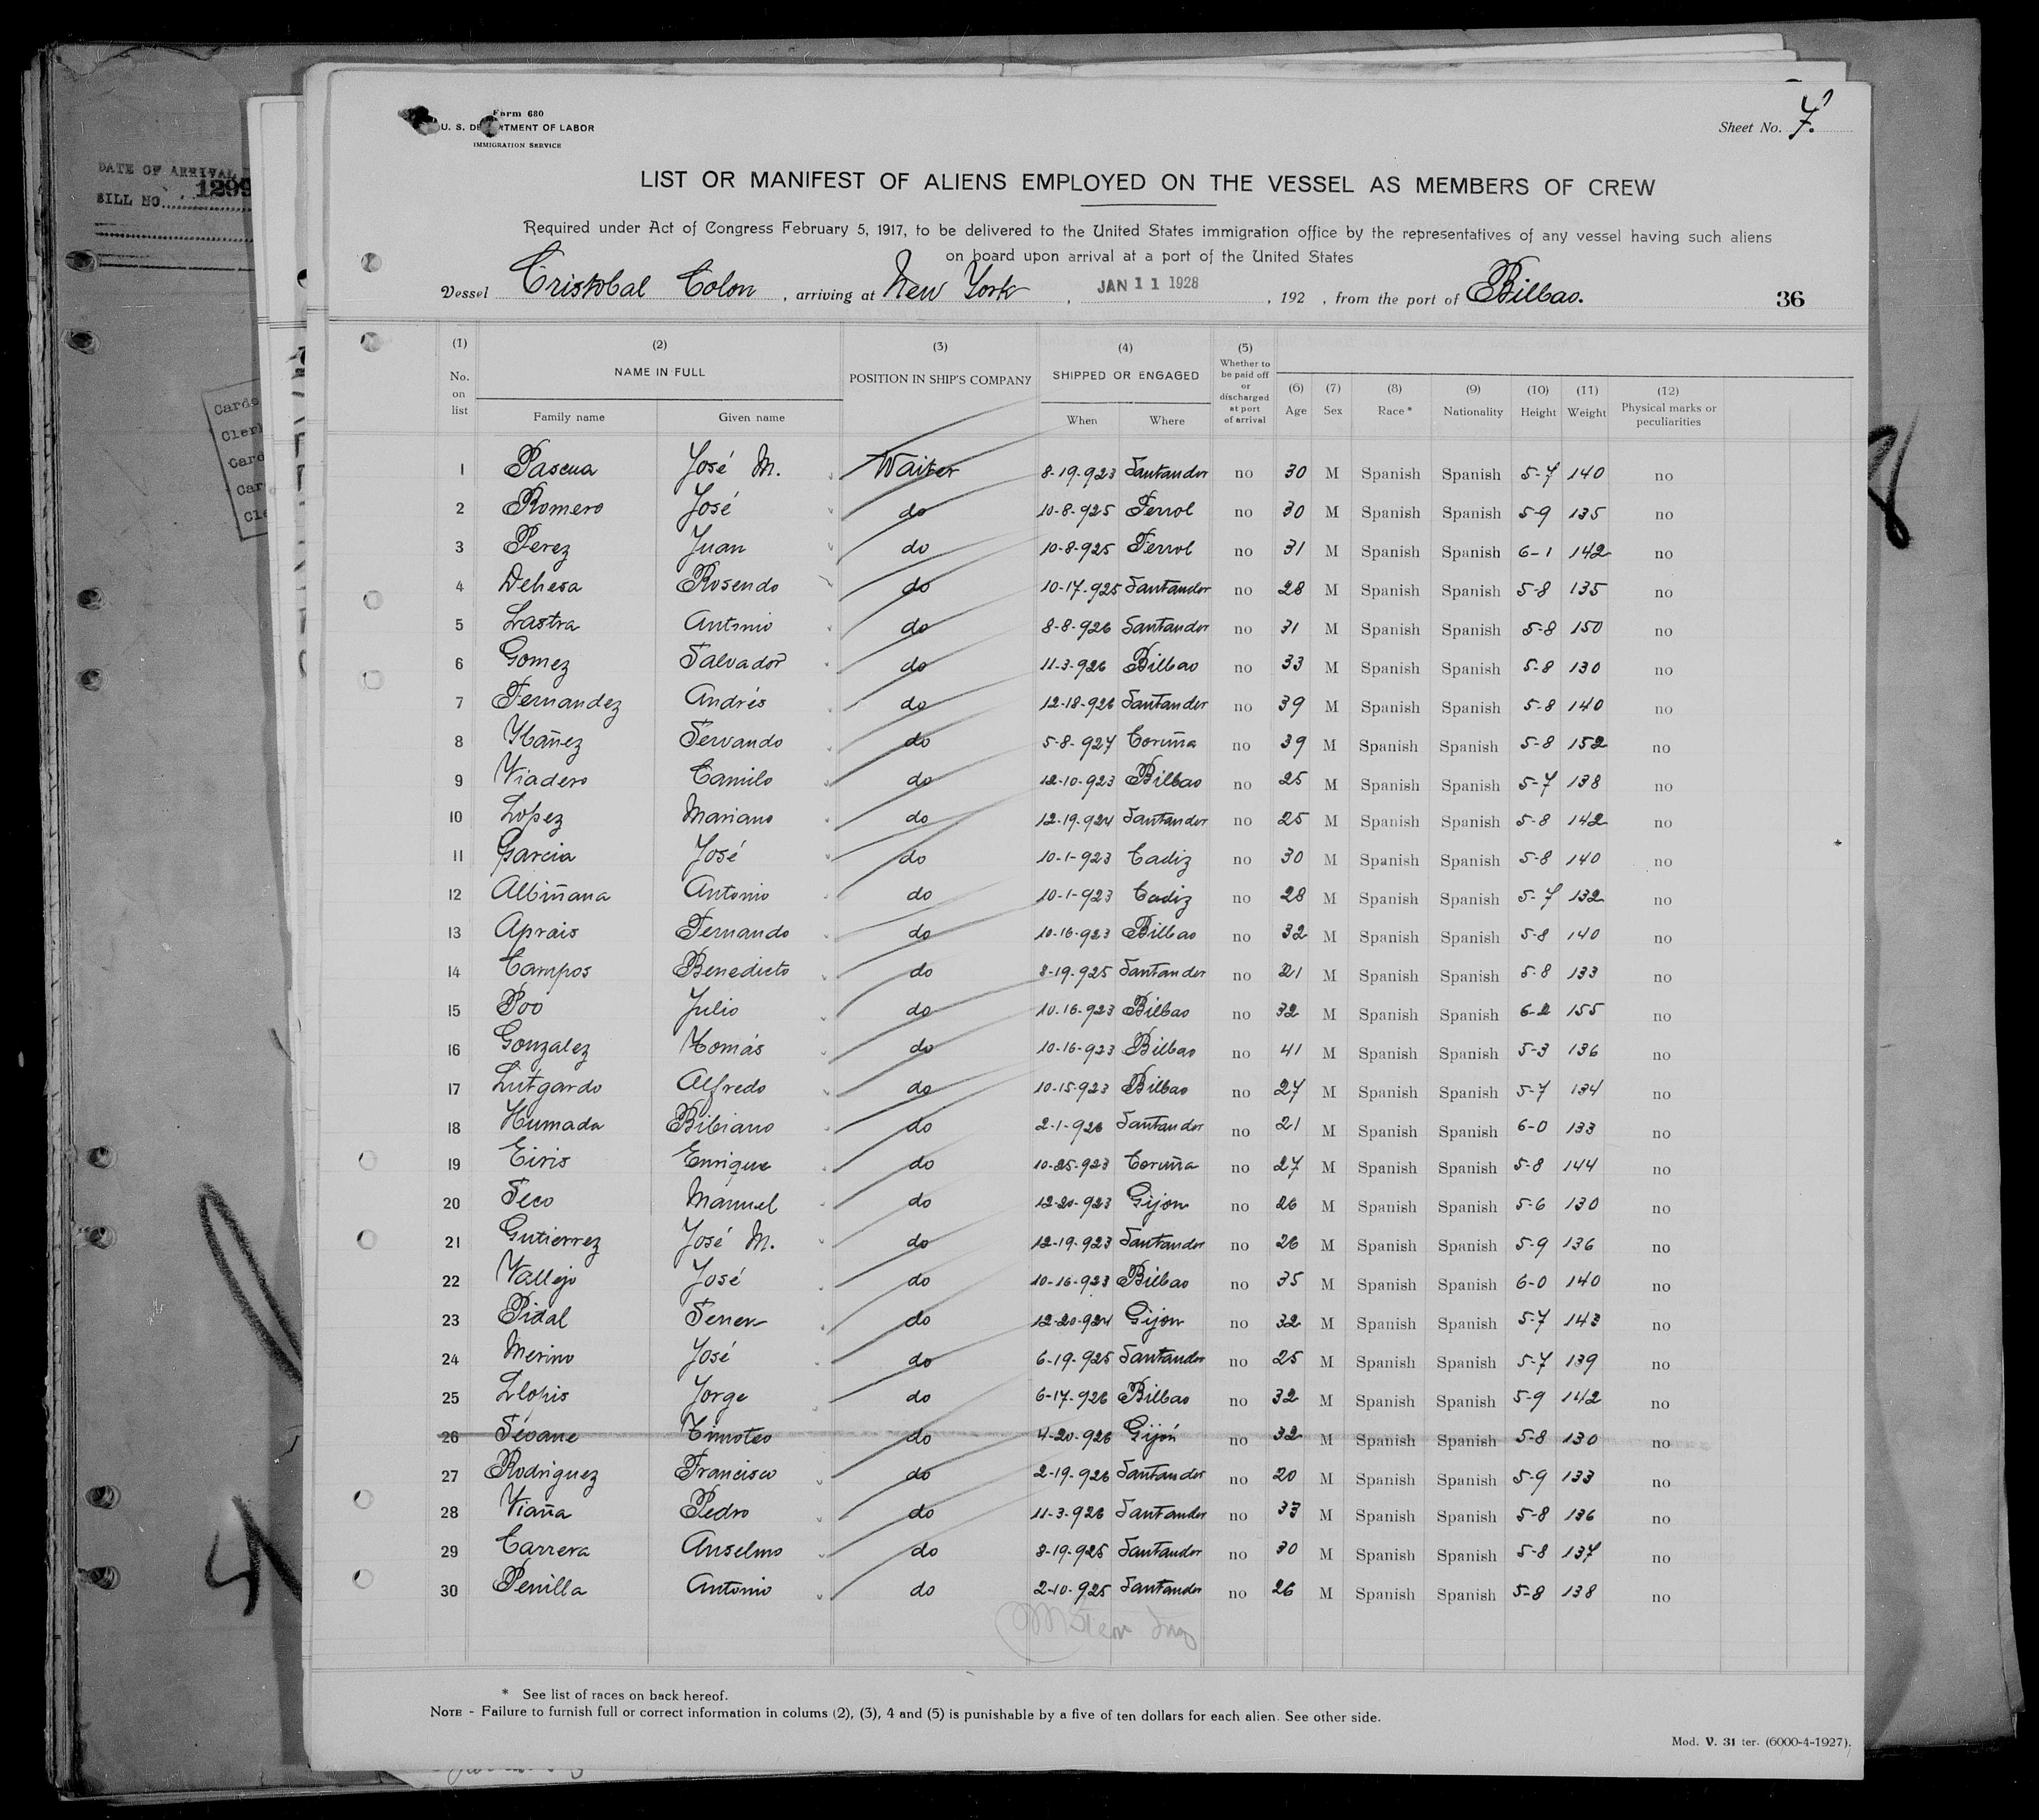 DATE OF ARRIVAL
BILL NO. 1299
Cards
Cler
Card
Car
Cle
Form 680
U. S. DEPARTMENT OF LABOR
IMMIGRATION SERVICE
Sheet No. 7.
LIST OR MANIFEST OF ALIENS EMPLOYED ON THE VESSEL AS MEMBERS OF CREW
Required under Act of Congress February 5, 1917, to be delivered to the United States immigration office by the representatives of any vessel having such aliens
on board upon arrival at a port of the United States
Vessel Cristobal Colon, arriving at New York, JAN 11 1928, 192 , from the port of Bilbao. 36
(1) No. on list (2) NAME IN FULL Family name Given name (3) POSITION IN SHIP'S COMPANY (4) SHIPPED OR ENGAGED When Where (5) Whether to be paid off or discharged at port of arrival (6) Age (7) Sex (8) Race * (9) Nationality (10) Height (11) Weight (12) Physical marks or peculiarities
1 Pascua José M. Waiter 8-19-923 Santander no 30 M Spanish Spanish 5-7 140 no
2 Romero José do 10-8-925 Ferrol no 30 M Spanish Spanish 5-9 135 no
3 Perez Juan do 10-8-925 Ferrol no 31 M Spanish Spanish 6-1 142 no
4 Dehesa Rosendo do 10-17-925 Santander no 28 M Spanish Spanish 5-8 135 no
5 Lastra Antonio do 8-8-926 Santander no 31 M Spanish Spanish 5-8 150 no
6 Gomez Salvador do 11-3-926 Bilbao no 33 M Spanish Spanish 5-8 130 no
7 Fernandez Andrés do 12-18-926 Santander no 39 M Spanish Spanish 5-8 140 no
8 Ybañez Servando do 5-8-927 Coruña no 39 M Spanish Spanish 5-8 152 no
9 Viadero Camilo do 12-10-923 Bilbao no 25 M Spanish Spanish 5-7 138 no
10 Lopez Mariano do 12-19-924 Santander no 25 M Spanish Spanish 5-8 142 no
11 Garcia José do 10-1-923 Cadiz no 30 M Spanish Spanish 5-8 140 no
12 Albiñana Antonio do 10-1-923 Cadiz no 28 M Spanish Spanish 5-7 132 no
13 Aprais Fernando do 10-16-923 Bilbao no 32 M Spanish Spanish 5-8 140 no
14 Campos Benedicto do 8-19-925 Santander no 21 M Spanish Spanish 5-8 133 no
15 Poo Julio do 10-16-923 Bilbao no 32 M Spanish Spanish 6-2 155 no
16 Gonzalez Tomás do 10-16-923 Bilbao no 41 M Spanish Spanish 5-3 136 no
17 Lutgardo Alfredo do 10-15-923 Bilbao no 27 M Spanish Spanish 5-7 134 no
18 Humada Bibiano do 2-1-926 Santander no 21 M Spanish Spanish 6-0 133 no
19 Eiris Enrique do 10-25-923 Coruña no 27 M Spanish Spanish 5-8 144 no
20 Seco Manuel do 12-20-923 Gijon no 26 M Spanish Spanish 5-6 130 no
21 Gutierrez José M. do 12-19-923 Santander no 26 M Spanish Spanish 5-9 136 no
22 Vallejo José do 10-16-923 Bilbao no 35 M Spanish Spanish 6-0 140 no
23 Pidal Senen do 12-20-924 Gijon no 32 M Spanish Spanish 5-7 143 no
24 Merino José do 6-19-925 Santander no 25 M Spanish Spanish 5-7 139 no
25 Llopis Jorge do 6-17-926 Bilbao no 32 M Spanish Spanish 5-9 142 no
26 Seoane Timoteo do 4-20-926 Gijón no 32 M Spanish Spanish 5-8 130 no
27 Rodriguez Francisco do 2-19-926 Santander no 20 M Spanish Spanish 5-9 133 no
28 Viaña Pedro do 11-3-926 Santander no 33 M Spanish Spanish 5-8 136 no
29 Carrera Anselmo do 8-19-925 Santander no 30 M Spanish Spanish 5-8 137 no
30 Penilla Antonio do 2-10-925 Santander no 26 M Spanish Spanish 5-8 138 no
* See list of races on back hereof.
NOTE - Failure to furnish full or correct information in colums (2), (3), 4 and (5) is punishable by a five of ten dollars for each alien. See other side.
Mod. V. 31 ter. (6000-4-1927).